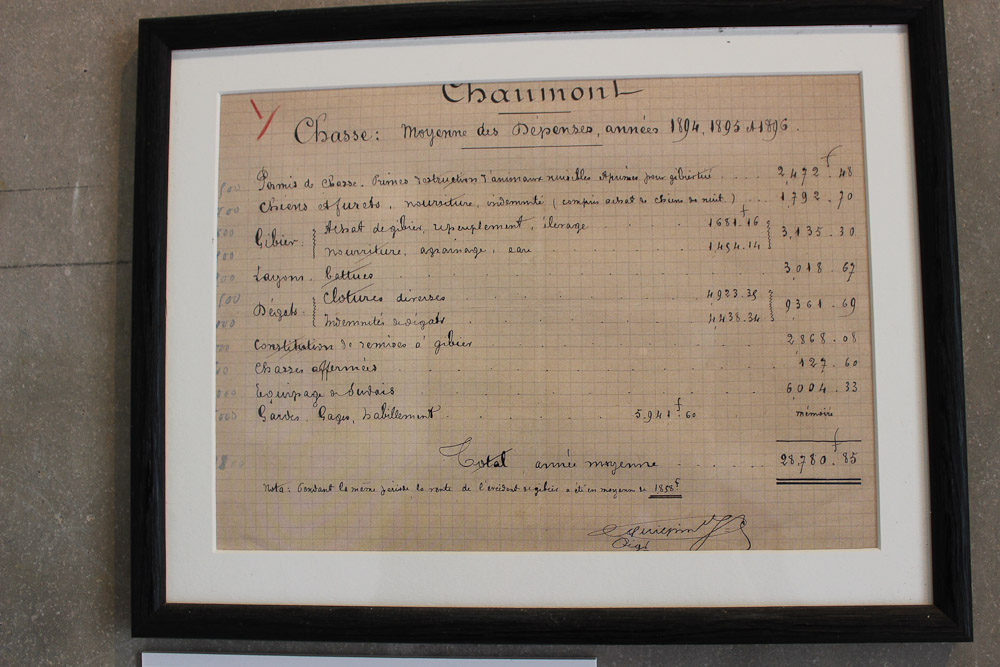 Chaumont
Chasse: Moyenne des Dépenses, années 1894, 1895 et 1896.
Permis de Chasse. Primes destruction d'animaux nuisibles et primes pour gibier tué 2,472 f 48
Chiens et furets, nourriture, indemnité (compris achat de chiens de nuit.) 1,792.70
Gibier { Achat de gibier, repeuplement, élevage 1681 f 16
nourriture, agrainage, eau 1454.14 } 3,135.30
Layons. battues 3,018.67
Dégats { Clotures diverses 4923.35
Indemnités de dégats 4438.34 } 9361.69
Constitution de remises à gibier 2,868.08
Chasses affermées 127.60
Equipage de 6,004.33
Gardes, Gages, habillement 5,941 f 60 mémoire
Total année moyenne 28,780 f 85
Nota: Pendant la même période la vente de l'excédent de gibier a été en moyenne de 1858 f